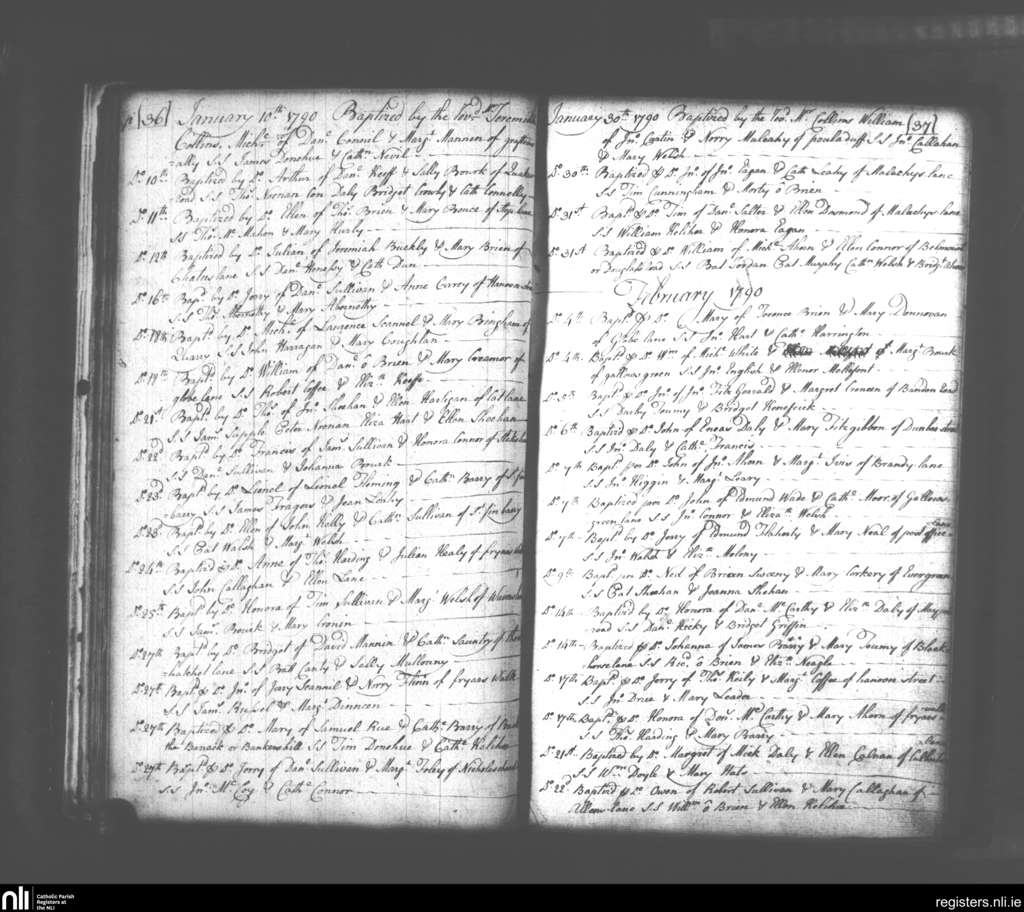 (36) January 10th 1790 Baptized by the Revd Mr Jeremiah
Collins, Michl of Danl Connil & Margt Mannen of
S.S James Donohue & Cathn Nevil
Do 10th Baptized by Do Arthur of Danl Keefe & Sally Bourk of Quaker
road S.S Thos Noonan Con Daly Bridget Crowly & Cath Connelly
Do 11th Baptized by Do Ellen of Thos Brien & Mary Bence of
SS Thos Mc Mahon & Mary Hurly
Do 12th Baptized by Do Julian of Jeremiah Buckly & Mary Brien of
lane S.S Danl Henessy & Cath Dun
Do 16th Bapd by Do Jerry of Danl Sullivan & Anne Carey of Hanover
S.S Thos Abernathy & Mary Abernethy
Do 18th Bapt by Do Michl of Laurence Scannel & Mary Bringham of
Quarry S.S John Horragan & Mary Coughlan
Do 19th Baptd by Do William of Danl ó Brien & Mary Creamor of
globe lane S.S Robert Coffee & Elizth Keefe
Do 21st Baptd by Do Thos of Jno Sheehan & Ellen Hartigan of
S.S Jams Supple Noonan Eliza Hart & Ellen Sheehan
Do 22d Baptd by Do Francis of Jams Sullivan & Honora Connor of
S.S Danl Sullivan & Johanna Bourk
Do 23d Baptd by Do Lionel of Lionel Fleming & Cathn Barry of St fin
barry S.S James Tragors & Jean Leahy
Do 23d Baptd by Do Ellen of John Kelly & Cathn Sullivan of St fin barry
S.S Pat Walsh & Margt Welsh
Do 24th Baptized & Do Anne of Thos Harding & Julian Healy of fryars
S.S John Callaghan & Ellen Lane
Do 25th Baptd by Do Honora of Tim Sullivan & Margt Welsh of
S.S Jams Bourk & Mary Cronen
Do 27th Baptd by Do Bridget of David Mannin & Cathn Sauntry of
hatchet lane S.S Batt Canty & Sally Mullowny
Do 27th Baptd & Do Jno of Jerry Scannel & Norry Flinn of fryars Walk
S.S Jams Russel & Margt Dinneen
Do 27th Baptized & Do Mary of Samuel Rue & Cathn Barry of
the Barrack or Bankershill S.S Tim Donohue & Cathn Keliher
Do 29th Baptd & Do Jerry of Danl Sullivan & Margt Foley of Nicholas church
S.S Jno Mc Coy & Cathn Connor
January 30th 1790 Baptized by the Revd Mr Collins William (37)
of Jno & Norry Mulcahy of pouladuff S.S Jno Callahan
& Mary Welsh
Do 30th Baptized & Do Jno of Jno Eagan & Cath Leahy of Malachys lane
S.S Tim Cunningham & Morty o Brien
Do 31st Baptd & Do Tim of Danl Salter & Ellen Desmond of Malachys lane
S.S William Keliher & Honora Eagan
Do 31st Baptized & Do William of Michl Ahern & Ellen Connor of
or Douglass road S.S Bat Jordan Pat Murphy Cathn Welsh & Bridgt Ahern
February 1790
Do 4th Baptd & Do Mary of Terence Brien & Mary Donnovan
of Globe lane S.S Jno Hart & Cathn Harrington
Do 4th Baptd & Do Wm of Michl White & Margt Bourk
of gallows green S.S Jno English & Ellenor Mollefont
Do Bapd & Do Jno of Jno Fitz Gerald & Margret Cronen of Bandon road
S.S Darby Toumy & Bridget
Do 6th Baptizd & Do John of Eneas Daly & Mary Fitzgibbon of Dunbar street
S.S Jno Daly & Cathn Francis
Do 7th Baptd per Do John of Jno Ahern & Margt Ivirs of Brandy lane
S.S Jno Higgin & Margt Leary
Do 7th Baptized per Do John of Edmund Wade & Cathn Moor of Gallows
green lane S.S Jno Connor & Elizath Welsh
Do 7th Baptd by Do Jerry of Edmund Flaherty & Mary Neal of post office lane
S.S Jno Welsh & Elizth Melony
Do 9th Baptd per Do Ned of Brien Sweeny & Mary Corkery of Evergreen
S.S Pat Sheehan & Joanna Shehan
Do 14th Baptized by Do Honora of Danl Mc Carthy & Elizth Daly of
road S.S Danl Hicky & Bridget Griffin
Do 14th Baptized & Do Johanna of James Barry & Mary Toumy of Black
horse lane S.S Ricd ó Brien & Elizth Neagle
Do 17th Baptd & Do Jerry of Thos Keily & Margt Coffee of hanover street
S.S Jno Drew & Mary Leader
Do 17th Baptd & Do Honora of Danl Mc Carthy & Mary Ahern of fryars walk
S.S Thos Harding & Mary Barry
Do 21st Baptized by Do Margret of Mick Daly & Ellen Calnan of
S.S Wm Doyle & Mary
Do 22d Baptizd & Do Owen of Robert Sullivan & Mary Callaghan of
Allens lane S.S Willm ó Brien & Ellen Kelihir
nli
Catholic Parish
Registers at
the NLI
registers.nli.ie